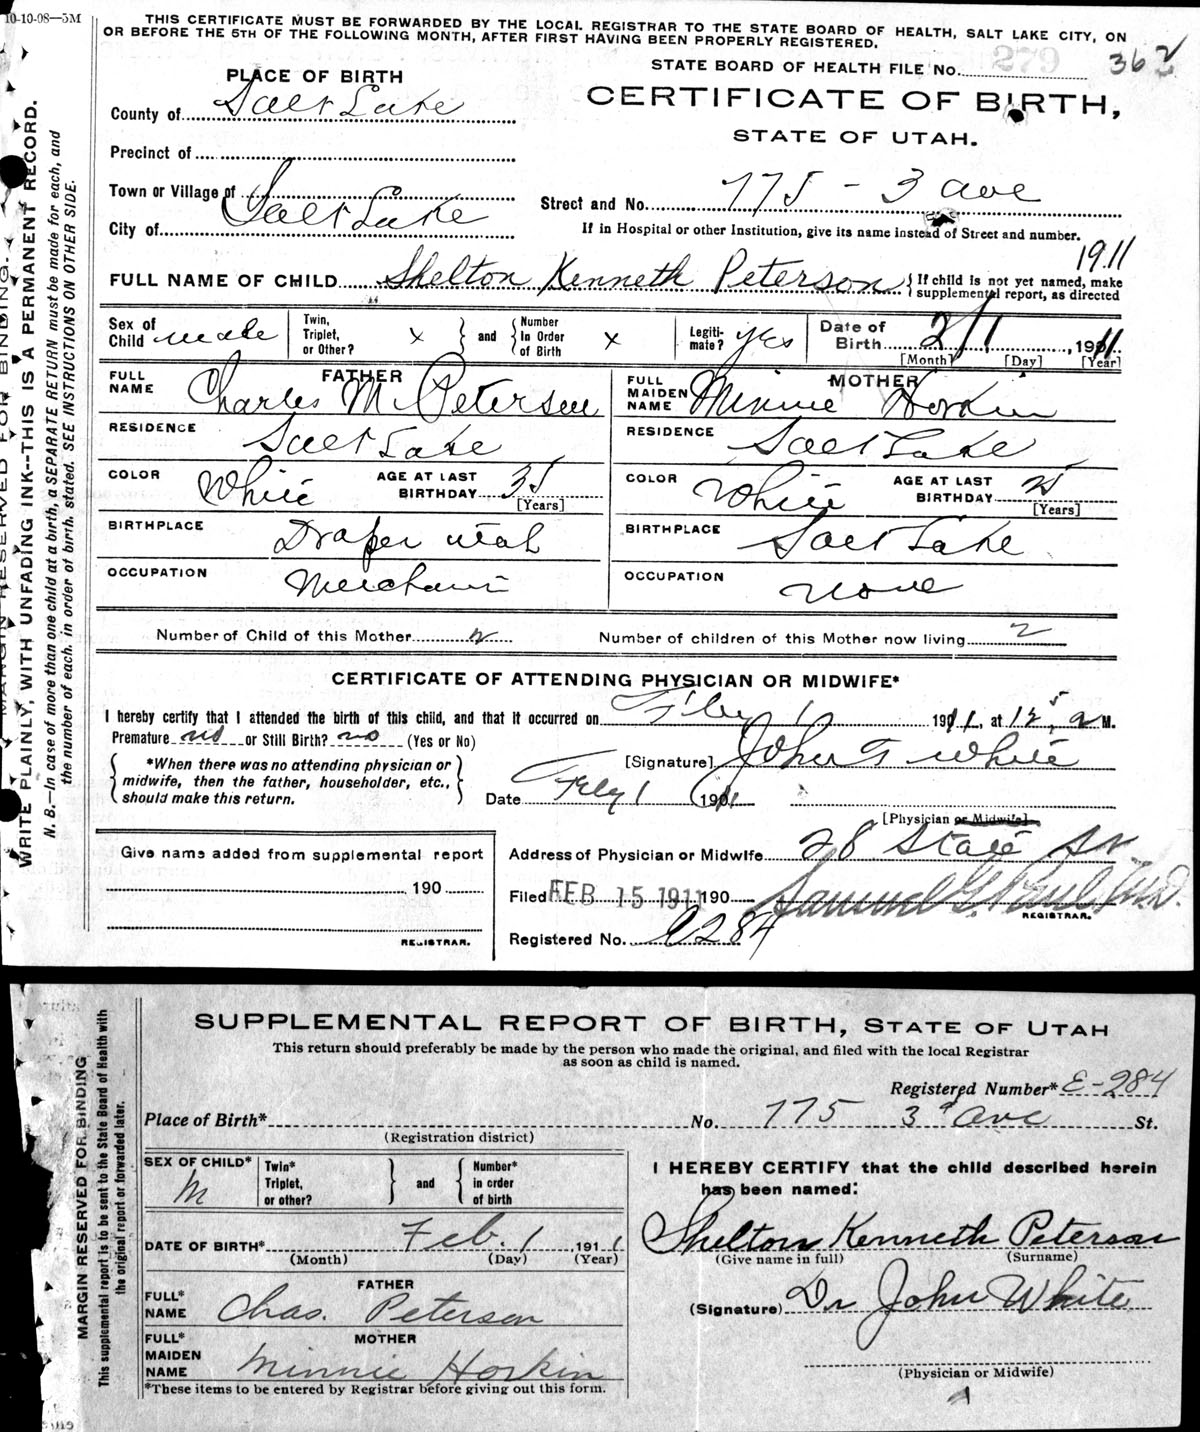 10-10-08—5M
THIS CERTIFICATE MUST BE FORWARDED BY THE LOCAL REGISTRAR TO THE STATE BOARD OF HEALTH, SALT LAKE CITY, ON
OR BEFORE THE 5TH OF THE FOLLOWING MONTH, AFTER FIRST HAVING BEEN PROPERLY REGISTERED.
STATE BOARD OF HEALTH FILE No. 279 362
PLACE OF BIRTH
CERTIFICATE OF BIRTH,
STATE OF UTAH.
County of Salt Lake
Precinct of
Town or Village of
City of Salt Lake
Street and No. 775 - 3 ave
If in Hospital or other Institution, give its name instead of Street and number.
1911
FULL NAME OF CHILD Shelton Kenneth Peterson { If child is not yet named, make
supplemental report, as directed
Sex of Child male Twin, Triplet, or Other? x } and { Number In Order of Birth x Legiti- mate? yes Date of Birth 2/1, 1911
[Month] [Day] [Year]
FATHER
FULL NAME Charles M. Petersen
RESIDENCE Salt Lake
COLOR White AGE AT LAST BIRTHDAY 35 [Years]
BIRTHPLACE Draper Utah
OCCUPATION Merchant
MOTHER
FULL MAIDEN NAME Minnie Horkin
RESIDENCE Salt Lake
COLOR White AGE AT LAST BIRTHDAY [Years]
BIRTHPLACE Salt Lake
OCCUPATION None
Number of Child of this Mother 2 Number of children of this Mother now living 2
CERTIFICATE OF ATTENDING PHYSICIAN OR MIDWIFE*
I hereby certify that I attended the birth of this child, and that it occurred on Feby 1 1911, at 12 5 a M.
Premature no or Still Birth? no (Yes or No)
*When there was no attending physician or
midwife, then the father, householder, etc.,
should make this return.
[Signature] John T White
Date Feby 1 1911
[Physician or Midwife]
Address of Physician or Midwife 28 State St
Filed FEB 15 1911 190 Samuel G. Paul M.D.
REGISTRAR.
Registered No. E284
Give name added from supplemental report
190
REGISTRAR.
MARGIN RESERVED FOR BINDING.
WRITE PLAINLY, WITH UNFADING INK--THIS IS A PERMANENT RECORD.
N. B.—In case of more than one child at a birth, a SEPARATE RETURN must be made for each, and
the number of each, in order of birth, stated. SEE INSTRUCTIONS ON OTHER SIDE.
SUPPLEMENTAL REPORT OF BIRTH, STATE OF UTAH
This return should preferably be made by the person who made the original, and filed with the local Registrar
as soon as child is named.
Registered Number* E-284
Place of Birth* No. 775 3d Ave St.
(Registration district)
SEX OF CHILD* M Twin* Triplet, or other? } and { Number* in order of birth
DATE OF BIRTH* Feb. 1, 1911
(Month) (Day) (Year)
FATHER
FULL* NAME Chas. Peterson
MOTHER
FULL* MAIDEN NAME Minnie Horkin
*These items to be entered by Registrar before giving out this form.
I HEREBY CERTIFY that the child described herein
has been named:
Shelton Kenneth Peterson
(Give name in full) (Surname)
(Signature) Dr John White
(Physician or Midwife)
MARGIN RESERVED FOR BINDING
This supplemental report is to be sent to the State Board of Health with
the original report or forwarded later.